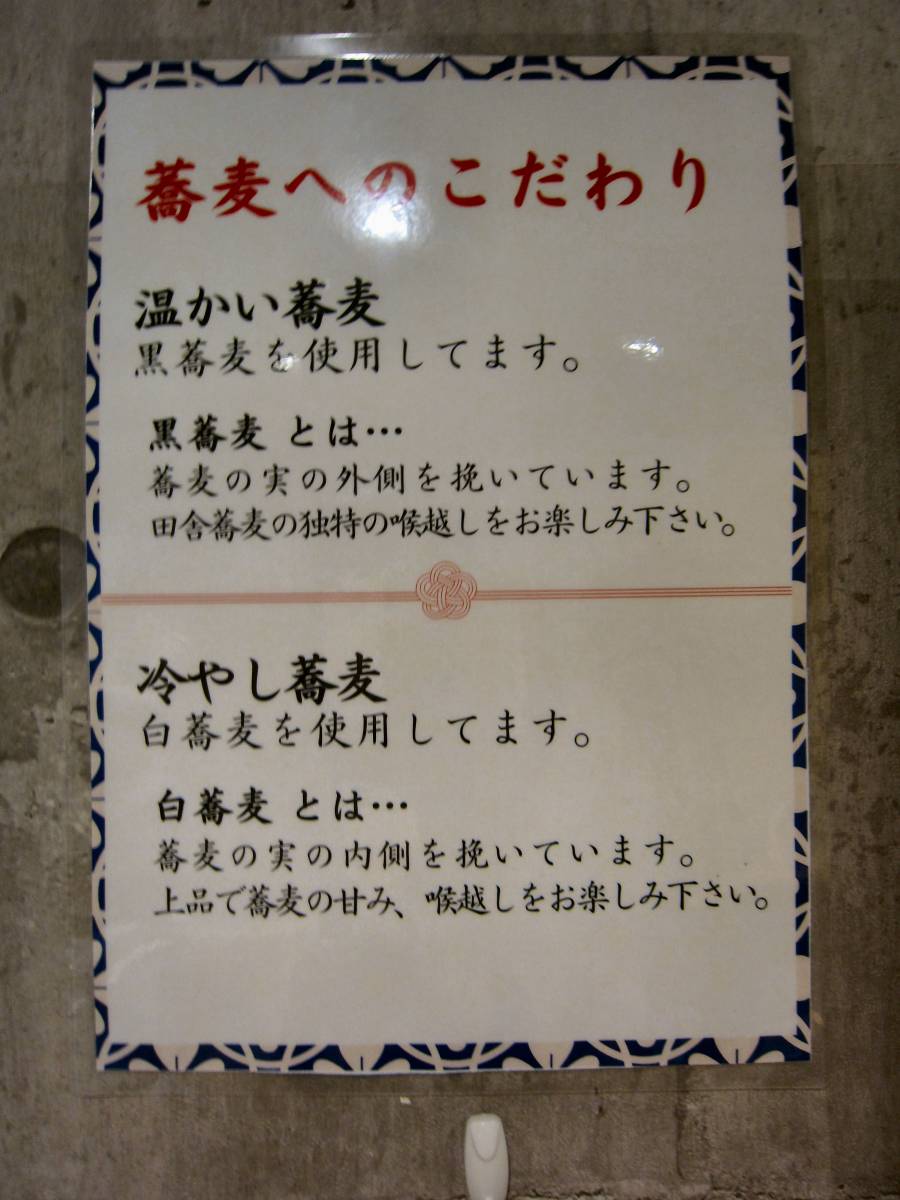 蕎麦へのこだわり
温かい蕎麦
黒蕎麦を使用してます。
黒蕎麦 とは…
蕎麦の実の外側を挽いています。
田舎蕎麦の独特の喉越しをお楽しみ下さい。
冷やし蕎麦
白蕎麦を使用してます。
白蕎麦 とは…
蕎麦の実の内側を挽いています。
上品で蕎麦の甘み、喉越しをお楽しみ下さい。